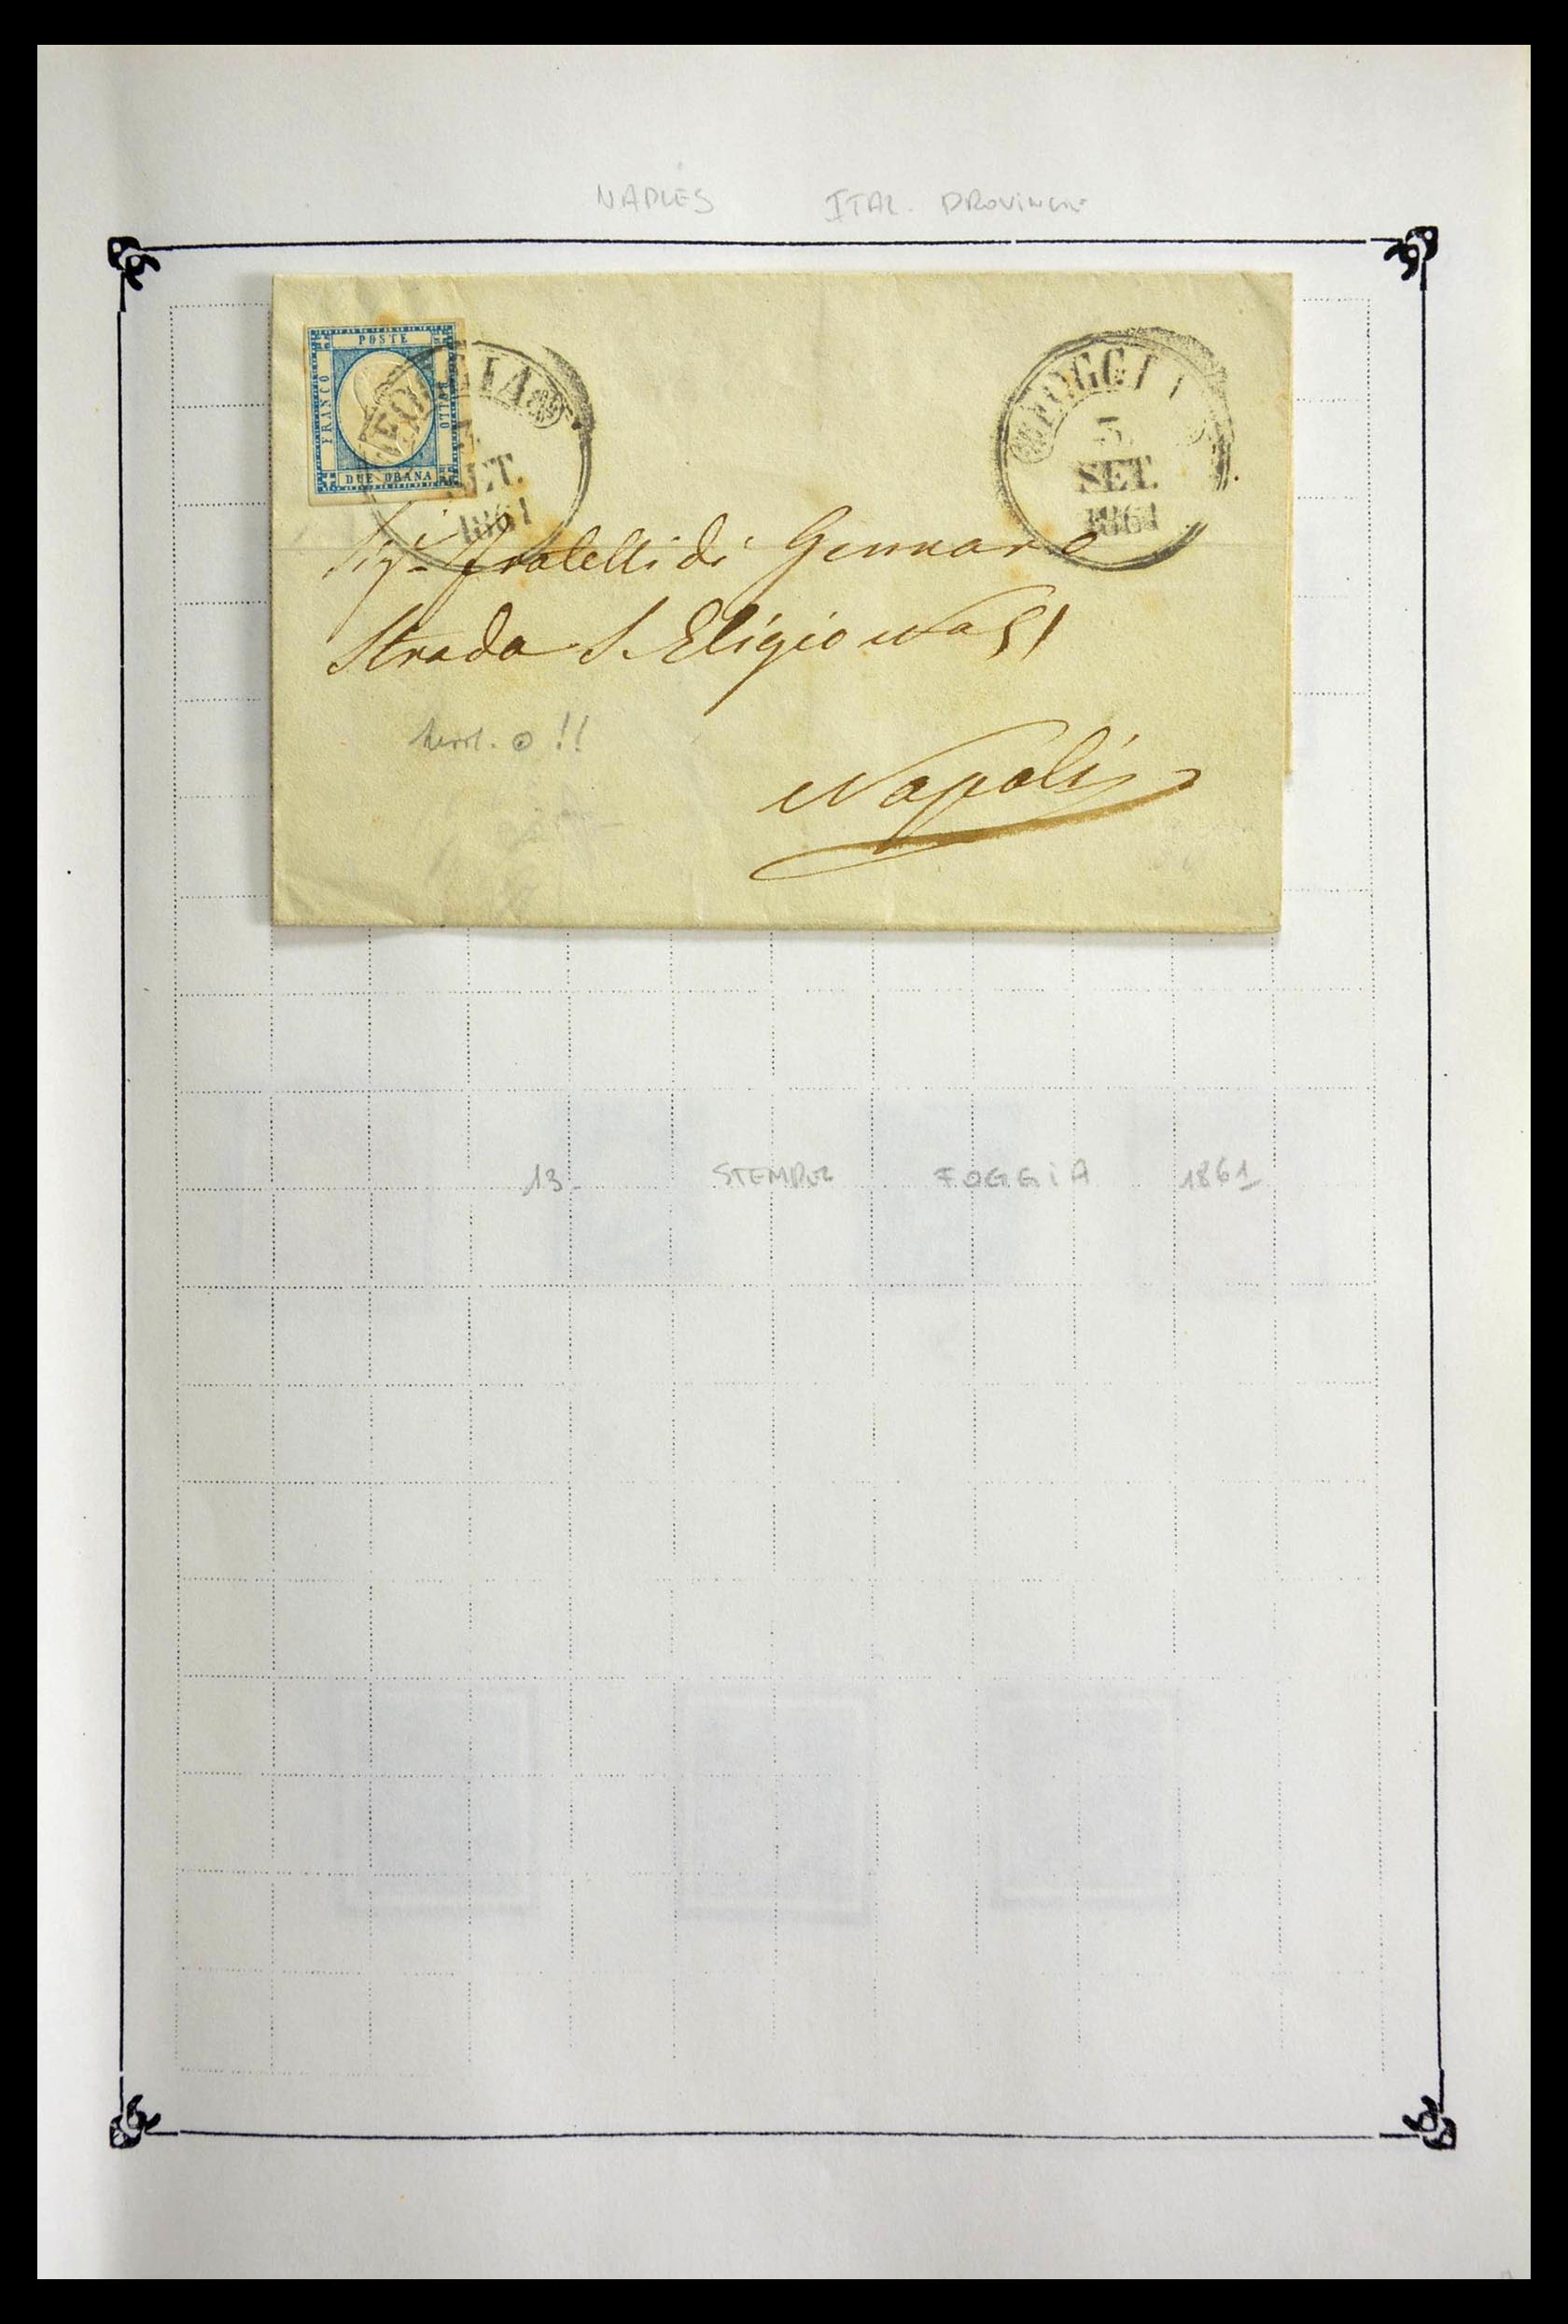 NAPLES ITAL. PROVINCIE
POSTE
FRANCO
BOLLO
DUE GRANA
FOGGIA
SET.
1861
FOGGIA
3
SET.
1861
Sigri fratelli di Gennaro
Strada S. Eligio No 51
!!
Napoli
13- STEMPEL FOGGIA 1861